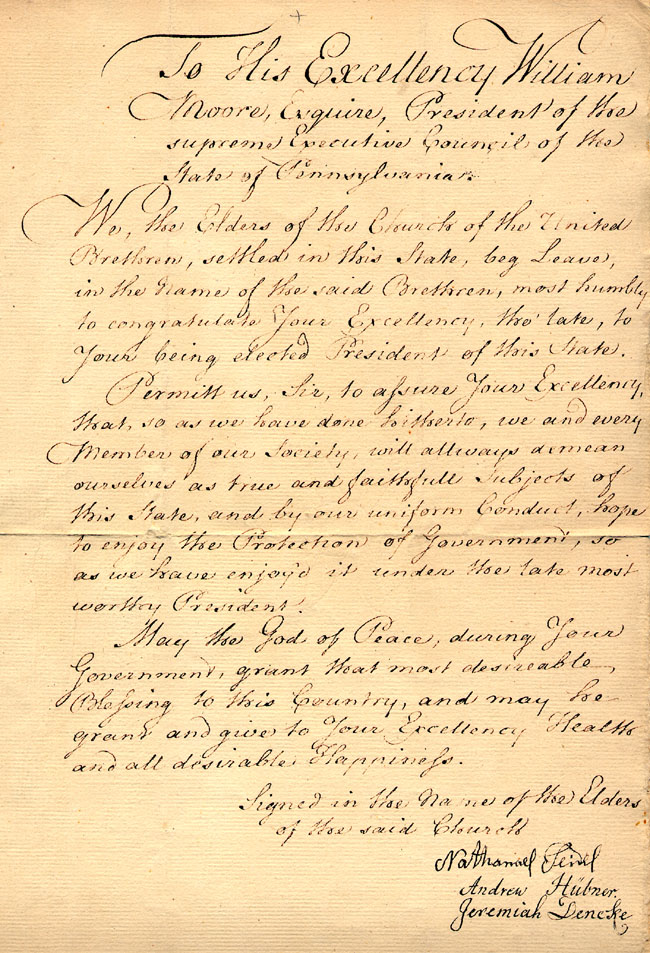 To His Excellency William
Moore, Esquire, President of the
supreme Executive Council of the
State of Pennsylvania.
We, the Elders of the Church of the United
Brethren, settled in this State, beg Leave,
in the Name of the said Brethren, most humbly
to congratulate Your Excellency, tho' late, to
Your being elected President of this State.
Permitt us, Sir, to assure Your Excellency,
that, so as we have done hitherto, we and every
Member of our Society, will allways demean
ourselves as true and faithfull Subjects of
this State, and by our uniform Conduct, hope
to enjoy the Protection of Government, so
as we have enjoy'd it under the late most
worthy President.
May the God of Peace, during Your
Government, grant that most desireable
Blessing to this Country, and may he
grant and give to Your Excellency Health
and all desirable Happiness.
Signed in the Name of the Elders
of the said Church
Nathanael Seidel
Andrew Hübner.
Jeremiah Dencke